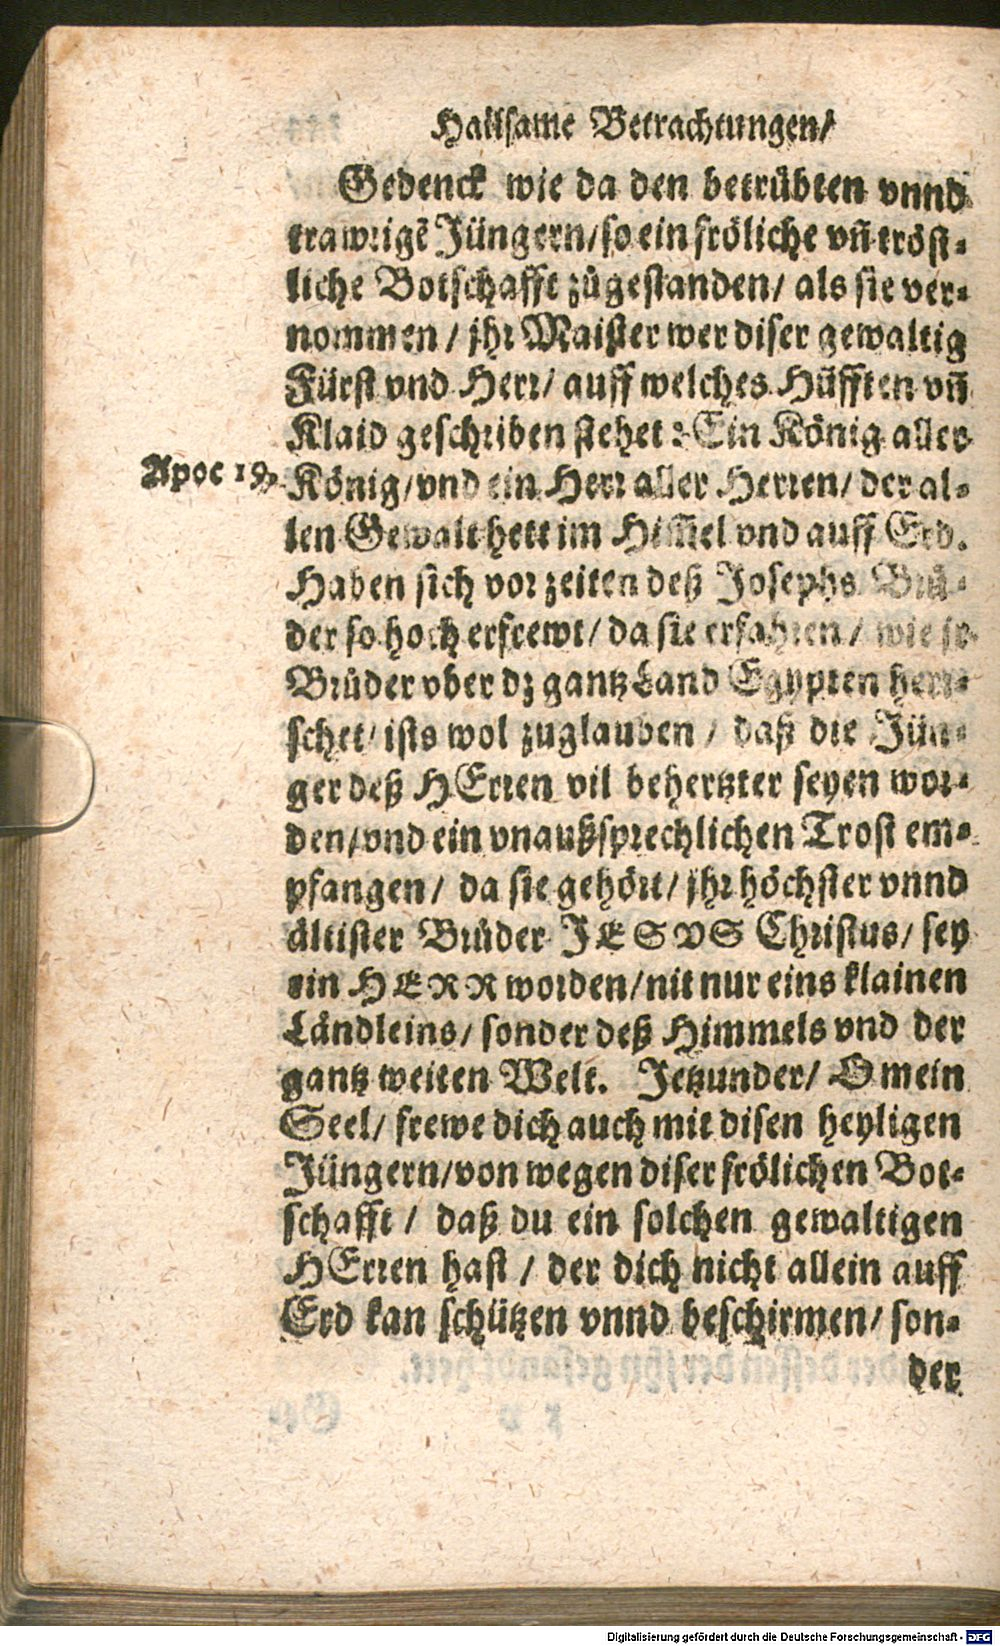 Hailsame Betrachtungen/
Gedenck wie da den betrübten vnnd
trawrigẽ Jüngern/so ein fröliche vñ tröst-
liche Botschafft zůgestanden/ als sie ver-
nommen / jhr Maister wer diser gewaltig
Fürst vnd Herr/ auff welches Hüfften vñ
Klaid geschriben stehet: Ein König aller
Apoc 19.
König/vnd ein Herr aller Herren/ der al-
len Gewalt hett im Him̃el vnd auff Erd.
Haben sich vor zeiten deß Josephs Brů-
der so hoch erfrewt/ da sie erfahren / wie jr
Brůder vber dz gantz Land Egypten herr-
schet/ ists wol zuglauben / daß die Jün-
ger deß HErren vil behertzter seyen wor-
den/vnd ein vnaußsprechlichen Trost em-
pfangen/ da sie gehört/ jhr höchster vnnd
ältister Brůder JESVS Christus/ sey
ein HERR worden/nit nur eins klainen
Ländleins/ sonder deß Himmels vnd der
gantz weiten Welt. Jetzunder/ O mein
Seel/ frewe dich auch mit disen heyligen
Jüngern/von wegen diser frölichen Bot-
schafft / daß du ein solchen gewaltigen
HErren hast / der dich nicht allein auff
Erd kan schützen vnnd beschirmen/ son-
der
Digitalisierung gefördert durch die Deutsche Forschungsgemeinschaft - DFG